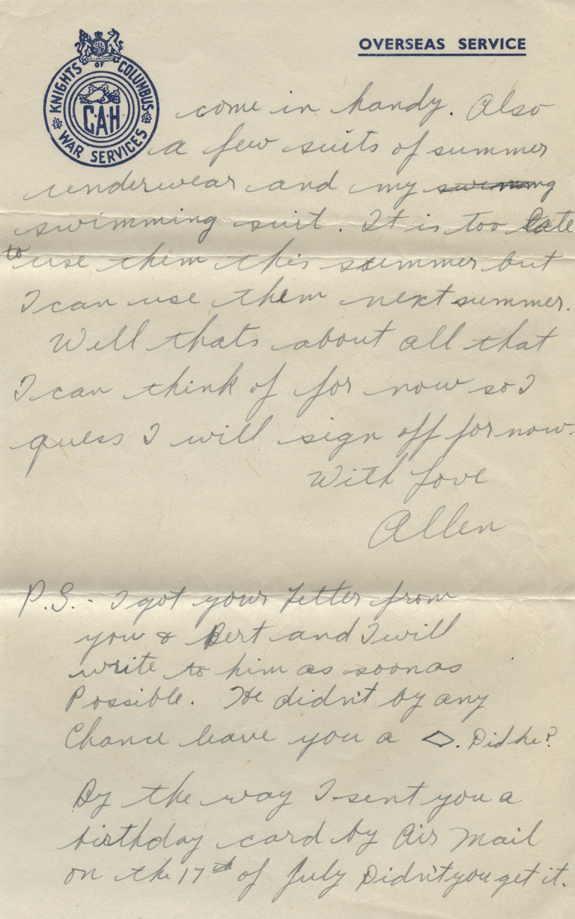 OVERSEAS SERVICE
KNIGHTS OF COLUMBUS
C·A·H
WAR SERVICES
come in handy. Also
a few suits of summer
underwear and my swimming
swimming suit. It is too late
to use them this summer but
I can use them next summer.
Well thats about all that
I can think of for now so I
guess I will sign off for now.
With Love
Allen
P.S. - I got your Letter from
you & Bert and I will
write to him as soon as
Possible. He didn't by any
Chance leave you a ◇. Did he?
By the way I sent you a
birthday card by Air Mail
on the 17th of July Didn't you get it.